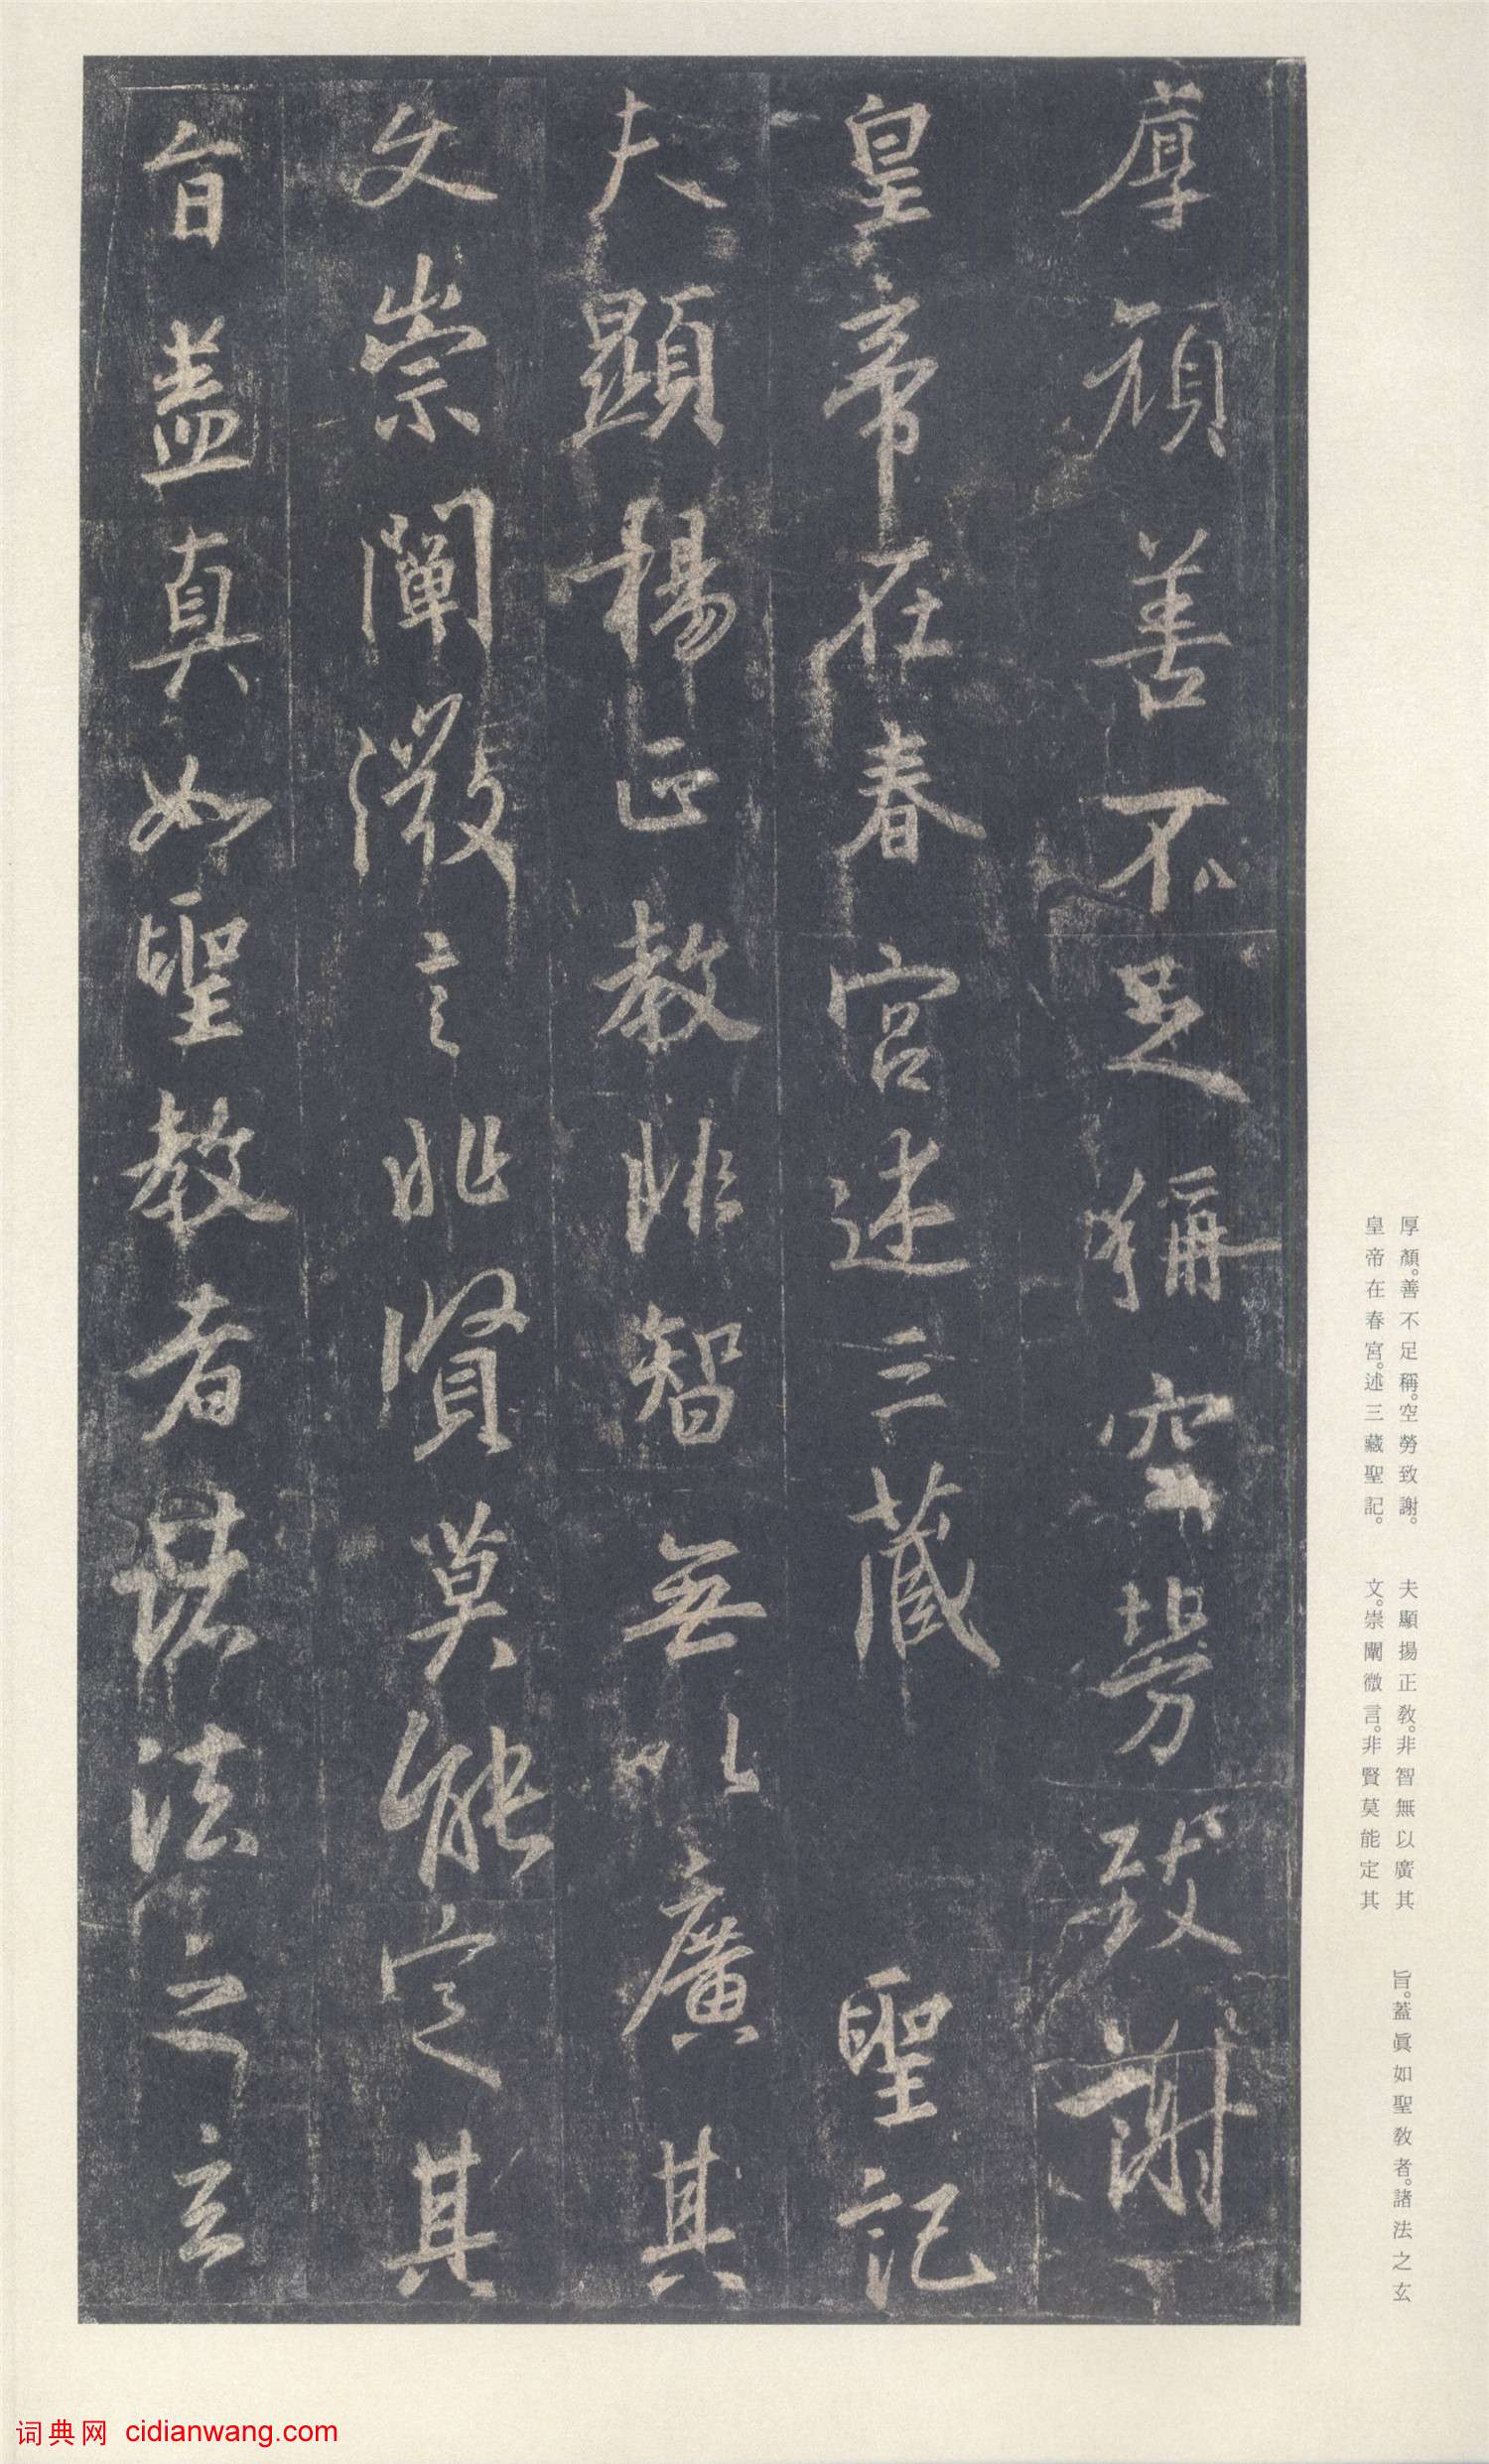 厚顏善不足稱空勞致謝
皇帝在春宮述三藏 聖記
夫顯揚正教非智無以廣其
文崇闡微言非賢莫能定其
旨蓋真如聖教者諸法之玄
厚顏。善不足稱。空勞致謝。
皇帝在春宮。述三藏聖記。
夫顯揚正教。非智無以廣其
文。崇闡微言。非賢莫能定其
旨。蓋眞如聖教者。諸法之玄
词典网 cidianwang.com